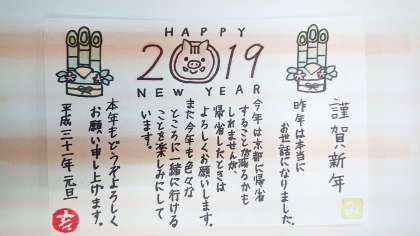 HAPPY
2019
NEW YEAR
謹賀新年
昨年は本当に
お世話になりました。
今年は京都に帰省
することが減るかも
しれませんが、
帰省したときは
よろしくお願いします。
また今年も色々な
ところに一緒に行ける
ことを楽しみにして
います。
本年もどうぞよろしく
お願い申し上げます。
平成三十一年元旦